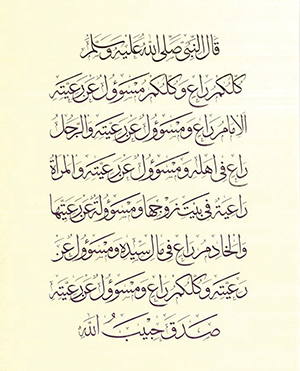 قال النبي صلى الله عليه وسلم
كلكم راع وكلكم مسؤول عن رعيته
الإمام راع ومسؤول عن رعيته والرجل
راع في اهله ومسؤول عن رعيته والمرأة
راعية في بيت زوجها ومسؤولة عن رعيتها
والخادم راع في مال سيده ومسؤول عن
رعيته وكلكم راع ومسؤول عن رعيته
صدق حبيب الله